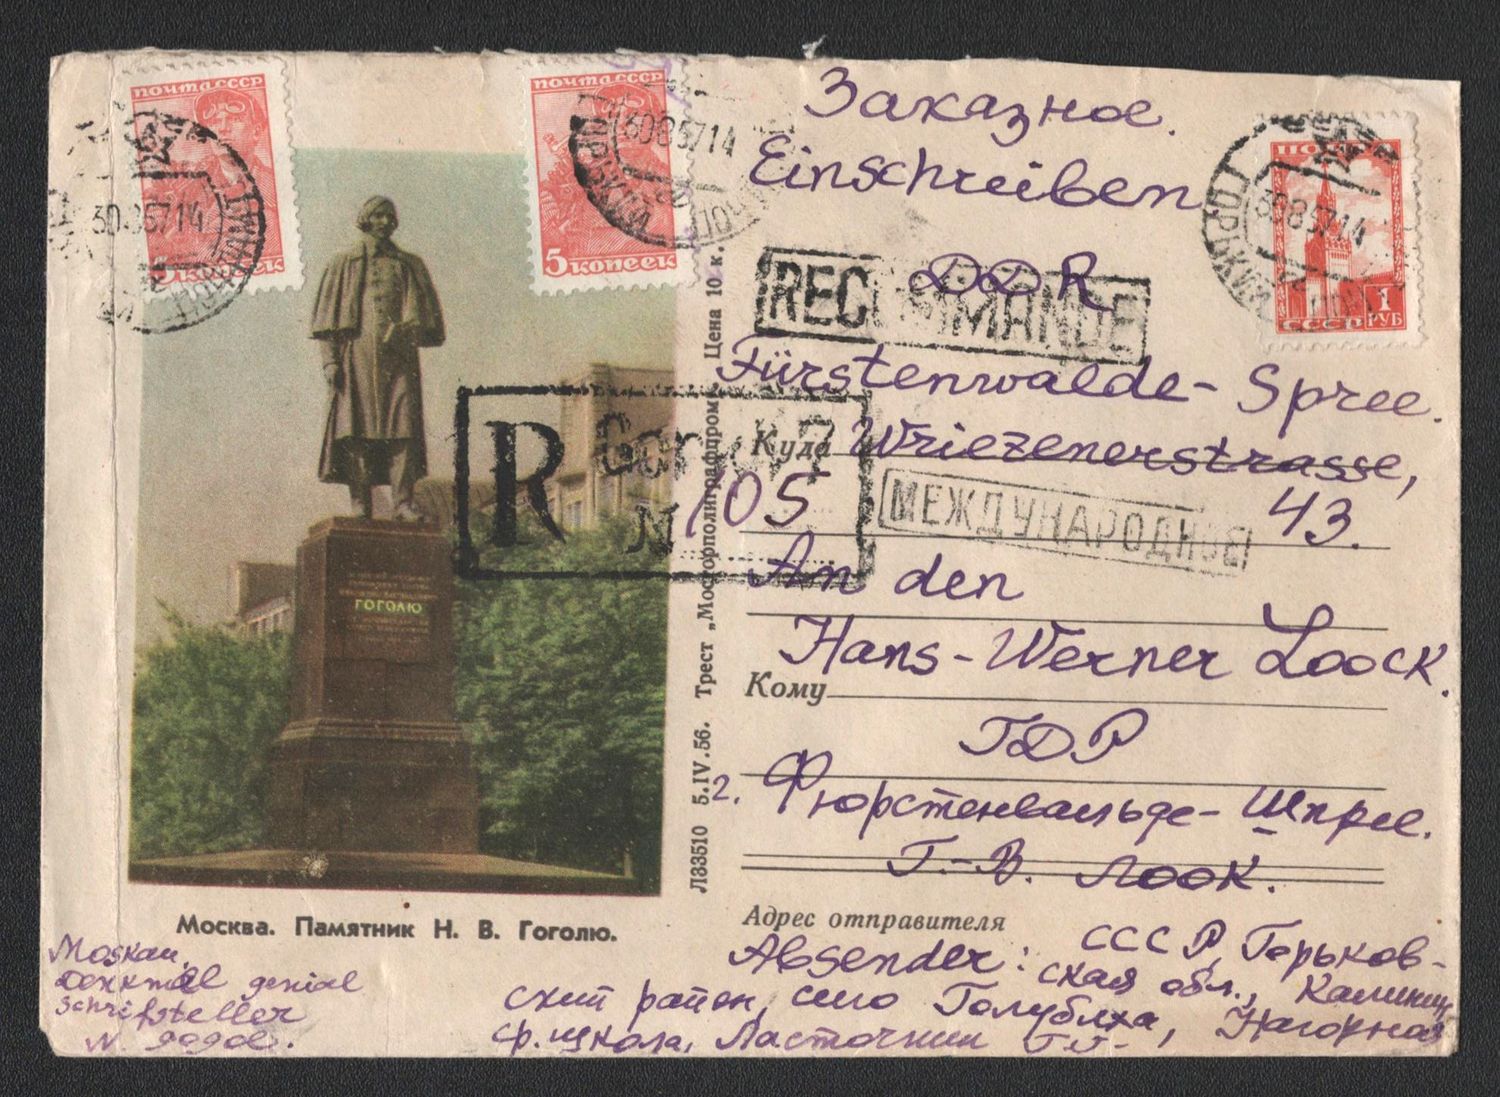 ПОЧТА СССР
5 КОПЕЕК
30.8.57.14
ПОЧТАМТ
ПОЧТА СССР
5 КОПЕЕК
30857.14
Заказное.
Einschreiben
ПОЧТА
СССР 1 РУБ
30857.14
ГОРЬКИЙ
DDR
RECOMMANDE
Fürstenwalde- Spree.
Куда Wriezenerstrasse,
43.
МЕЖДУНАРОДНОЕ
R Gorki 7
№ 105
An den
Hans-Werner Loock.
Кому
ГДР
2. Фюрстенвальде- Шпрее.
Г.-В. Лоок.
Адрес отправителя
Absender: СССР, Горьков-
ская обл., Калинин
ский район, село Голубиха, Нагорная
ср. школа, Ласточкин Г.Г.
ГОГОЛЮ
Л33510 5.IV.56. Трест „Мосгорполиграфпром“. Цена 10 к.
Москва. Памятник Н. В. Гоголю.
Moskau,
Denkmal genial
Schriftsteller
N. Gogol.